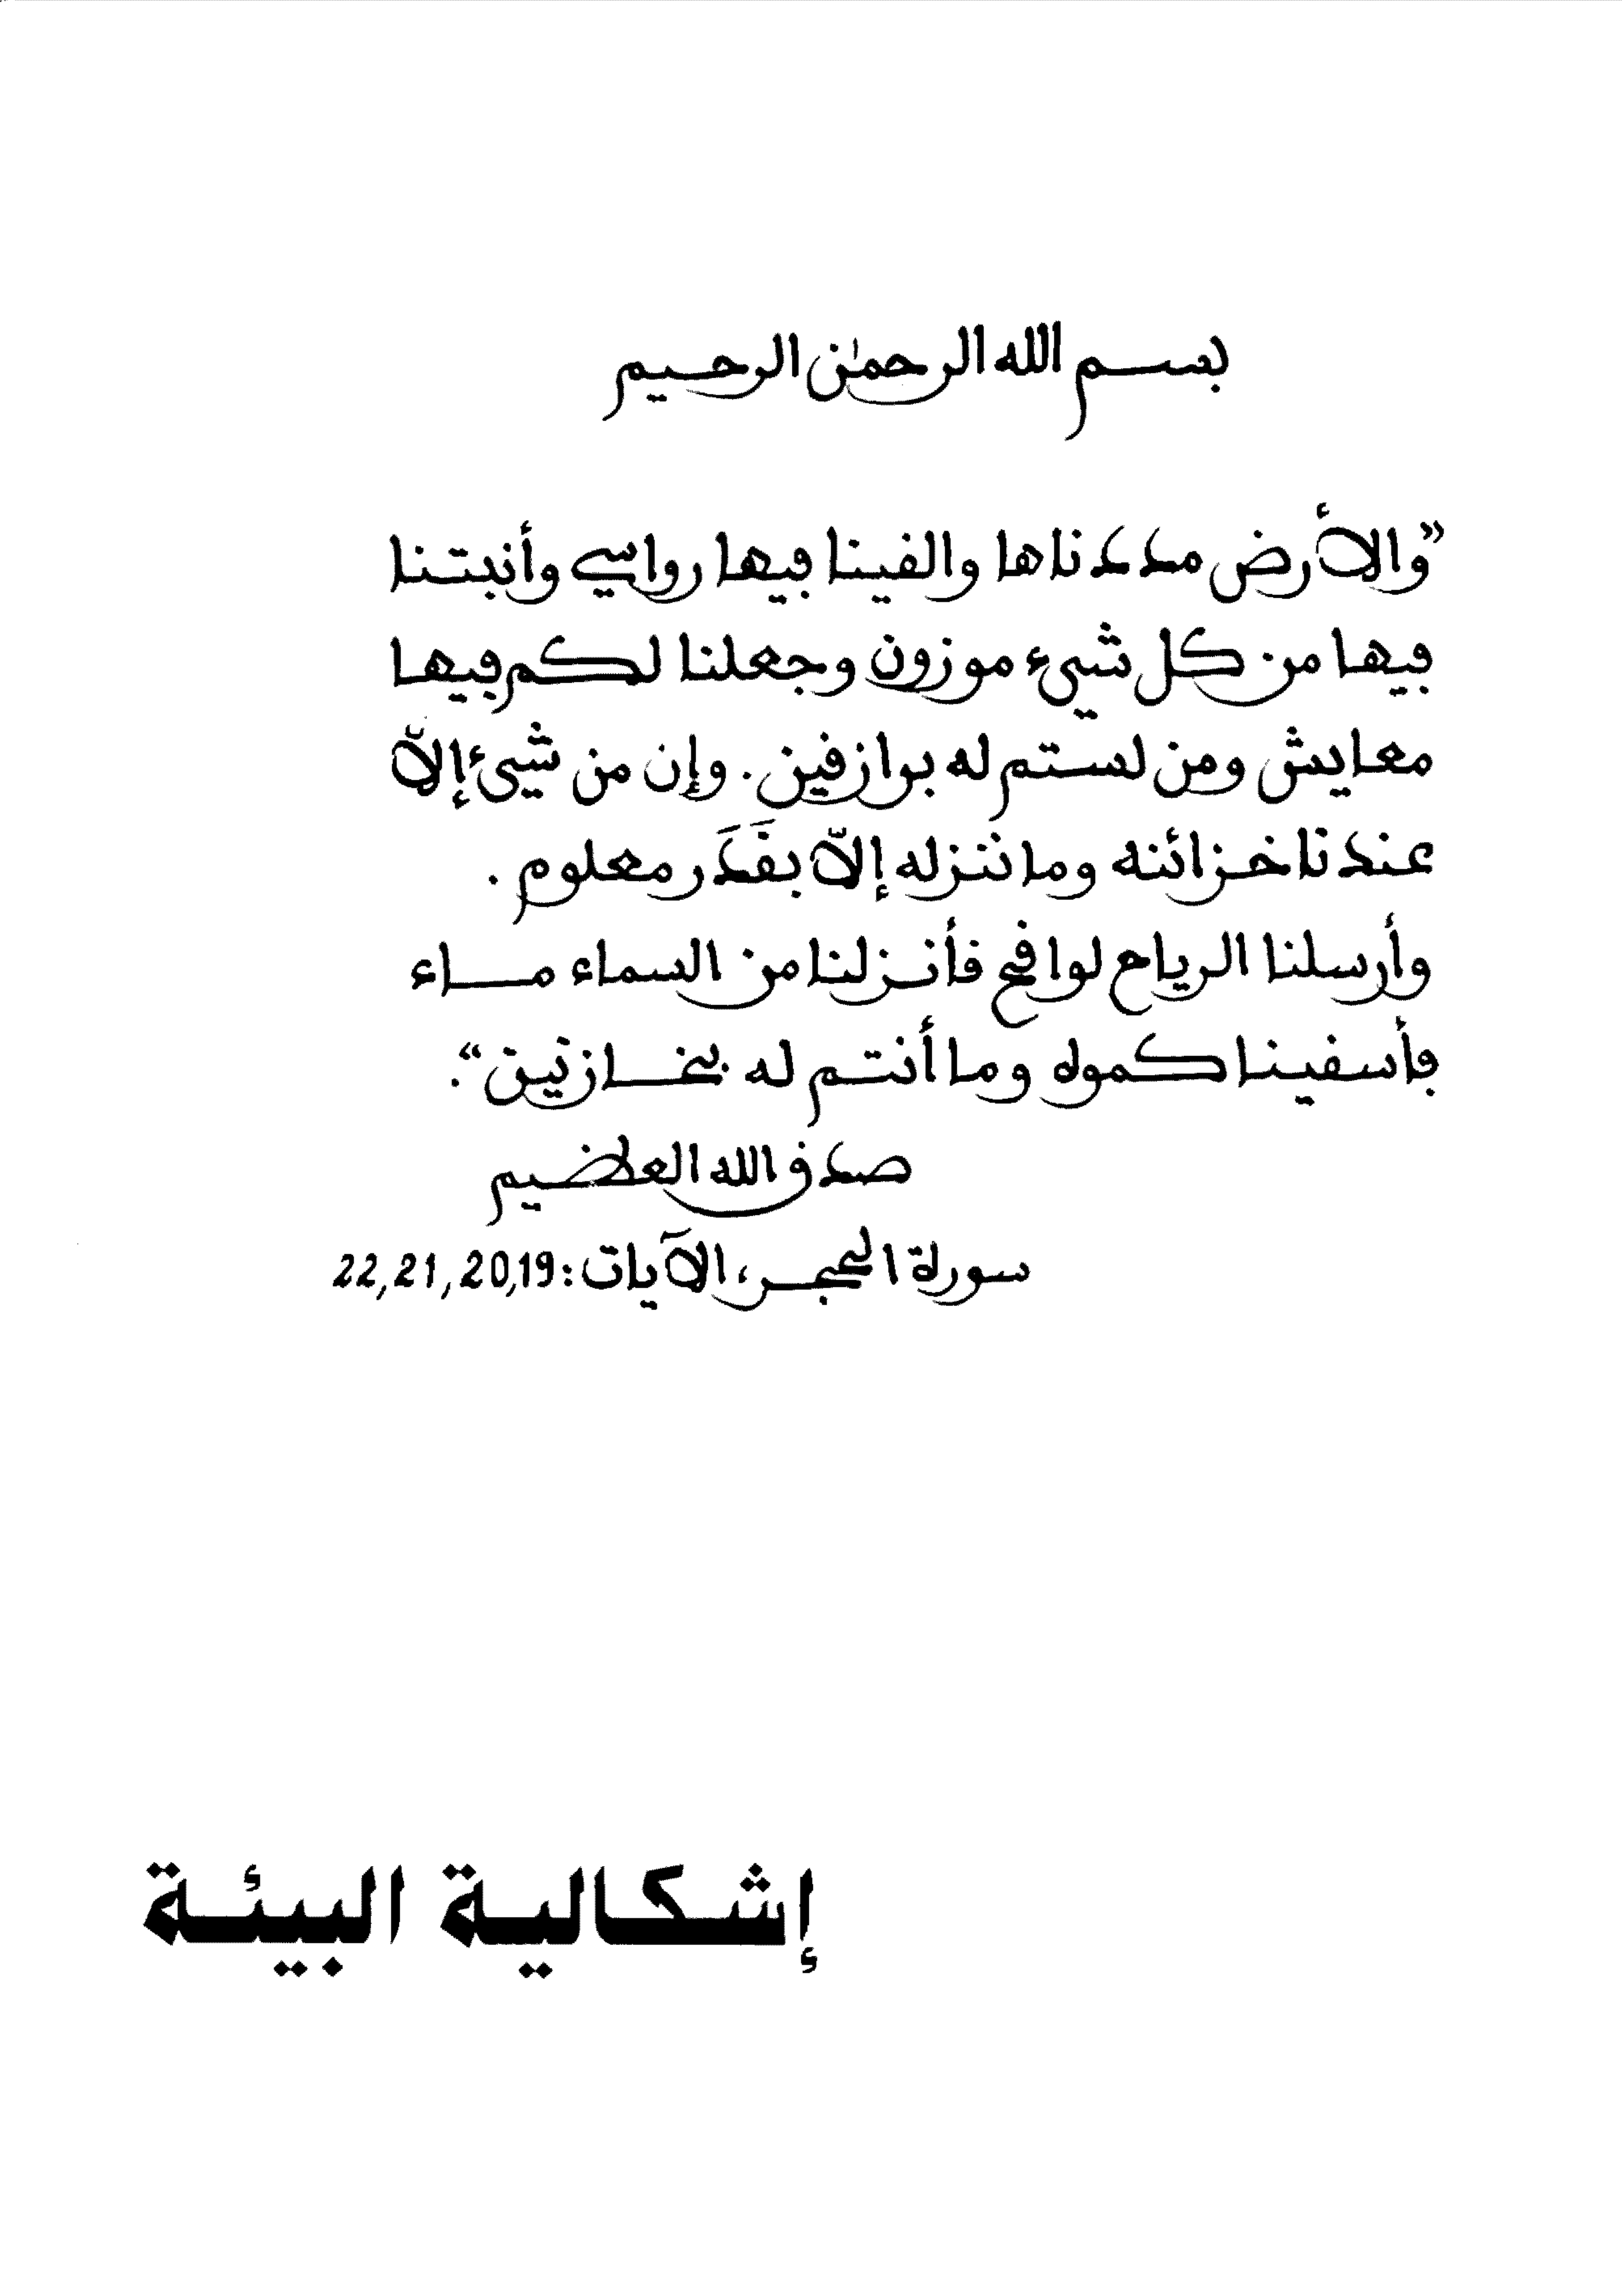 بسم الله الرحمٰن الرحيم
”والأرض مددناها وألقينا فيها رواسي وأنبتنا
فيها من كل شيء موزون وجعلنا لكم فيها
معايش ومن لستم له برازقين. وإن من شيئ إلاّ
عندنا خزائنه وما ننزله إلاّ بقَدَر معلوم.
وأرسلنا الرياح لواقح فأنزلنا من السماء ماء
فأسقيناكموه وما أنتم له بخازنين“.
صدق الله العظيم
سورة الحجر، الآيات: 19,20,21,22
إشكالية البيئة